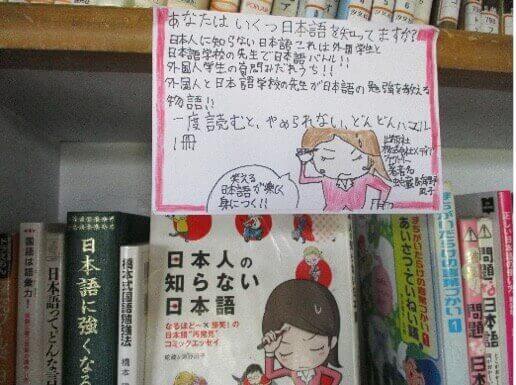 あなたはいくつ日本語を知ってますか?
日本人に知らない日本語これは外国学生と
日本語学校の先生で日本語バトル!!
外国人学生の質問みだれうち!!
外国人と日本語学校の先生が日本語の勉強を教える
物語!!
一度読むと、やめられない、どんどんハマル
1冊
出版社
著者名
笑える
日本語が楽しく
身につく!!
国語は語彙力!
日本語ってどんな言
日本語に強くなる
橋本式国語勉強法
橋本
日本人の
知らない
日本語
なるほど〜×爆笑!の
日本語"再発見"
コミックエッセイ
まちがいだらけの言葉づかい1
あいさつ・ていねい語
問題な日本語
正しい日本語の